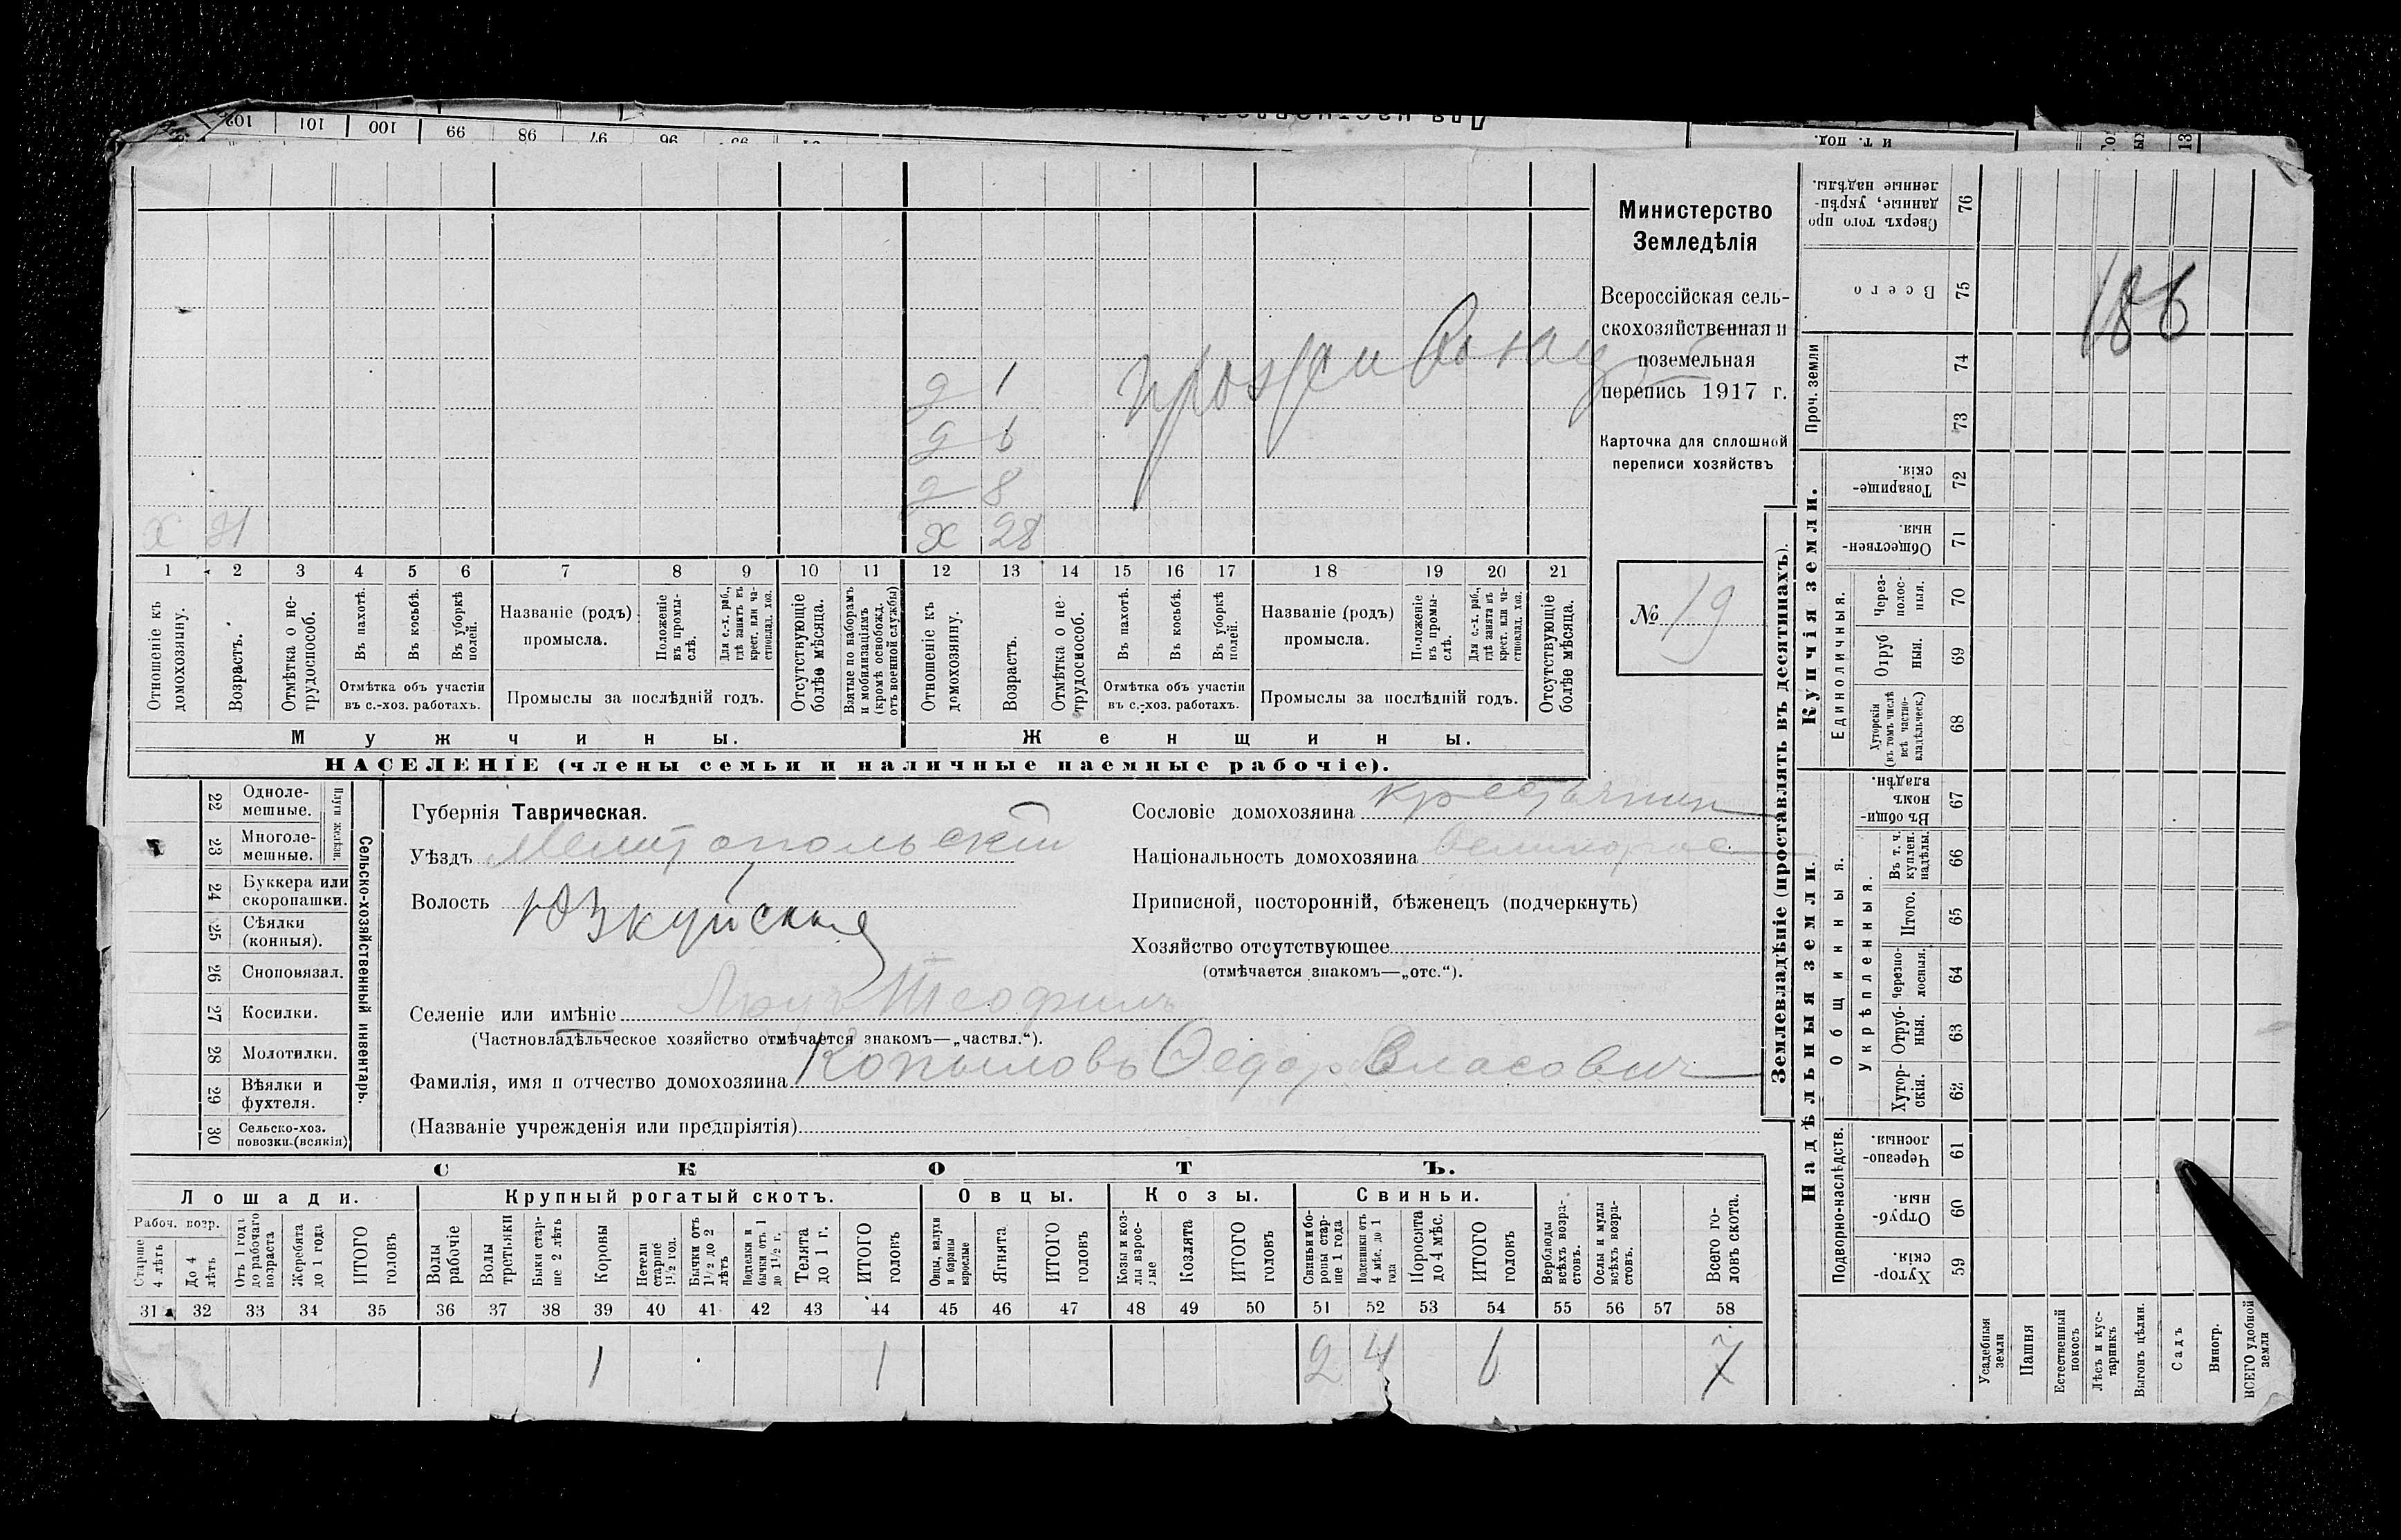 102 101 100 99 98 97 96
и т. под.
13
Министерство
Земледѣлія
Всероссійская сель-
скохозяйственная и
поземельная
перепись 1917 г.
Карточка для сплошной
переписи хозяйствъ
№ 19
проживающ
д 1
д 6
д 8
х 31 х 28
1 2 3 4 5 6 7 8 9 10 11 12 13 14 15 16 17 18 19 20 21
Отношеніе къ домохозяину.
Возрастъ.
Отмѣтка о не-трудоспособ.
Въ пахотѣ.
Въ косьбѣ.
Въ уборкѣ полей.
Отмѣтка объ участіи
въ с.-хоз. работахъ.
Названіе (родъ)
промысла.
Положеніе въ промы-слѣ.
Для с.-х. раб., гдѣ занятъ въ крест. или ча-стновлад. хоз.
Промыслы за послѣдній годъ.
Отсутствующіе болѣе мѣсяца.
Взятые по наборамъ и мобилизаціямъ (кромѣ освобожд. отъ военной службы)
Отношеніе къ домохозяину.
Возрастъ.
Отмѣтка о не-трудоспособ.
Въ пахотѣ.
Въ косьбѣ.
Въ уборкѣ полей.
Отмѣтка объ участіи
въ с.-хоз. работахъ.
Названіе (родъ)
промысла.
Положеніе въ промы-слѣ.
Для с.-х. раб., гдѣ занята въ крест. или ча-стновлад. хоз.
Промыслы за послѣдній годъ.
Отсутствующіе болѣе мѣсяца.
Мужчины. Женщины.
НАСЕЛЕНІЕ (члены семьи и наличные наемные рабочіе).
Сельско-хозяйственный инвентарь.
Плуги желѣзн.
22 Однолемешные.
23 Многолемешные.
24 Буккера или скоропашки.
25 Сѣялки (конныя).
26 Сноповязал.
27 Косилки.
28 Молотилки.
29 Вѣялки и фухтеля.
30 Сельско-хоз. повозки (всякія)
Губернія Таврическая.
Уѣздъ Мелитопольскій
Волость Юзкуйская
Сословіе домохозяина крестьянин
Національность домохозяина великорос
Приписной, посторонній, бѣженец (подчеркнуть)
Хозяйство отсутствующее
(отмѣчается знакомъ—„отс.“).
Селеніе или имѣніе
(Частновладѣльческое хозяйство отмѣчается знакомъ—„частвл.“).
Фамилія, имя и отчество домохозяина Копыловъ Федоръ Власович
(Названіе учрежденія или предпріятія)
СКОТЪ.
Лошади. Крупный рогатый скотъ. Овцы. Козы. Свиньи.
Рабоч. возр.
Старше 4 лѣтъ
До 4 лѣтъ
Отъ 1 года до рабочаго возраста
Жеребята до 1 года
ИТОГО головъ
Волы рабочіе
Волы третьяки
Быки стар-ше 2 лѣтъ
Коровы
Нетели старше 1½ год.
Бычки отъ 1½ до 2 лѣтъ
Подтелки и бычки отъ 1 до 1½ г.
Телята до 1 г.
ИТОГО головъ
Овцы, валухи и бараны взрослые
Ягнята
ИТОГО головъ
Козы и коз-лы взрос-лые
Козлята
ИТОГО головъ
Свиньи и бо-ровы стар-ше 1 года
Подсвинки отъ 4 мѣс. до 1 года
Поросята до 4 мѣс.
ИТОГО головъ
Верблюды всѣхъ возра-стовъ.
Ослы и мулы всѣхъ возра-стовъ.
Всего го-ловъ скота.
31 32 33 34 35 36 37 38 39 40 41 42 43 44 45 46 47 48 49 50 51 52 53 54 55 56 57 58
1 1 2 4 6 7
Землевладѣніе (проставлять въ десятинахъ).
Надѣльныя земли. Купчія земли. Проч. земли
Подворно-наслѣдств. Общинныя. Единоличныя.
Укрѣпленныя.
Хутор-скія. 59
Отруб-ныя. 60
Черезпо-лосныя. 61
Хутор-скія. 62
Отруб-ныя. 63
Черезпо-лосныя. 64
Итого. 65
Въ т. ч. куплен. надѣлы. 66
Въ общи-номъ владѣн. 67
Хуторскія (въ томъ числѣ всѣ частно-владѣльческ.) 68
Отруб ныя. 69
Через-полос-ныя. 70
Обществен-ныя. 71
Товарище-скія. 72
73
74
Всего 75
Сверхъ того про данные, укрѣп-ленные надѣлы. 76
186
Усадебныя земли
Пашня
Естественный покосъ
Лѣсъ и кус-тарникъ
Выгонъ цѣлин.
Садъ
Виногр.
ВСЕГО удобной земли